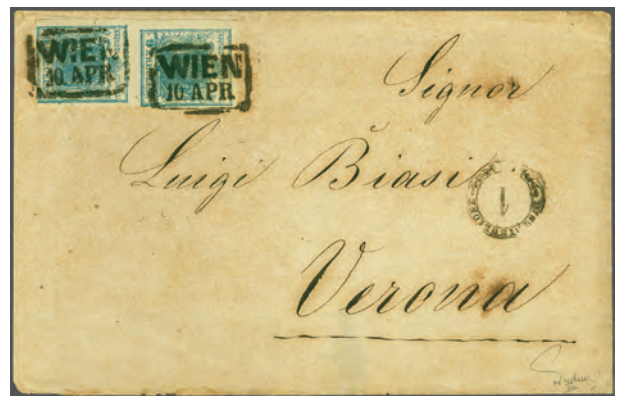 WIEN
10 APR
WIEN
10 APR
Signor
Luigi Biasi
1
Verona